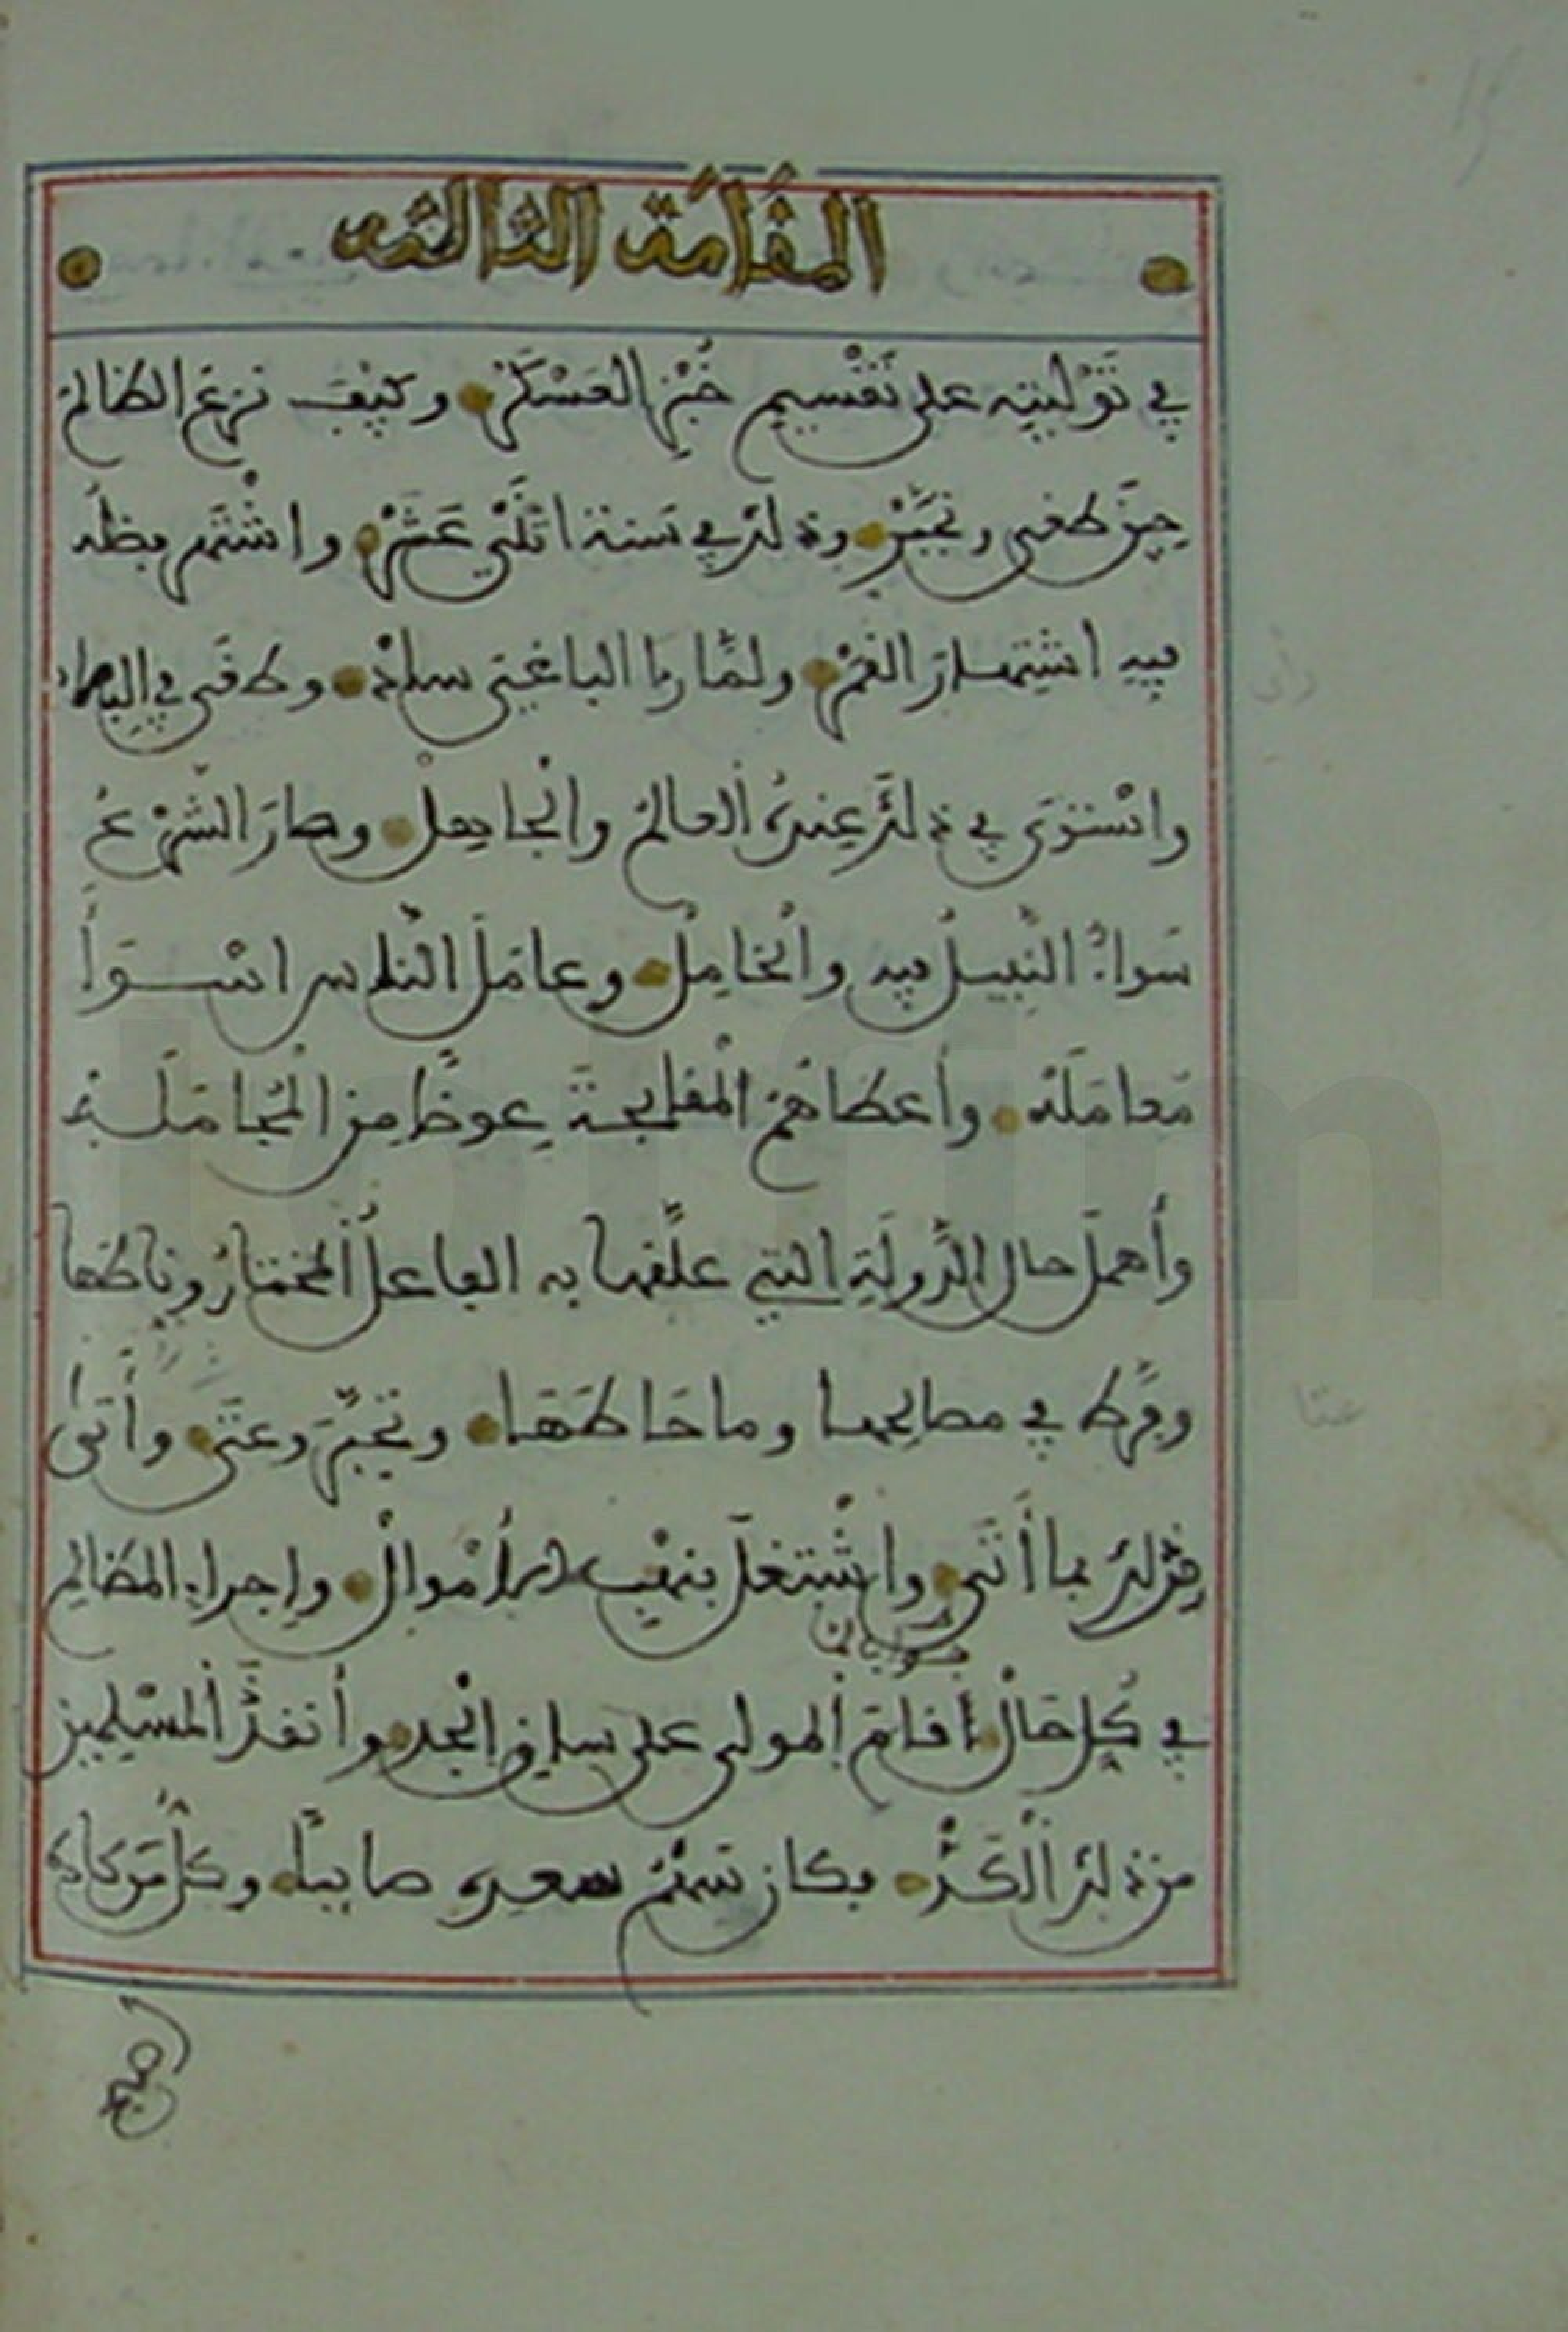 المقامة الثالثة
في توليته على تقسيم خبز العسكر وكيف نزع الظالم
حين طغى وتجبر وذلك في سنة اثني عشر واشتهر بظلمه
فيه اشتهار القمر ولما رءا الباغي سلاد وطغى في البلاد
واستوى في ذلك عنده العالم والجاهل وصار الشرع
سواء النبيل فيه والخامل وعامل الناس اسوأ
معامله واعطاهم المقابحة عوضا من المجاملة
وأهمل حال الدولة التي علقها به الفاعل المختار وناطها
وفرط في مصالحها وما حاطها وتجبر وعتى وأتى
في ذلك بما أتى واشتغل بنهب الاموال وإجراء المظالم
في كل حال أقام المولى على ساق الجد وأنقذ المسلمين
من ذلك الكد فكان سهم سعده صايبا وكل من كاده
عتا